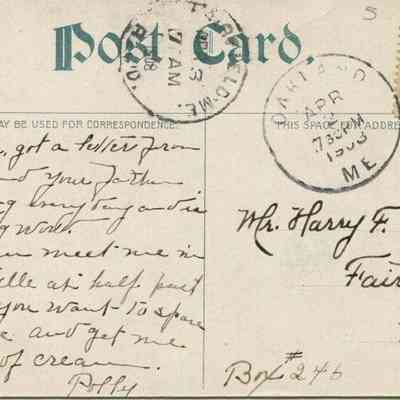 5
Post Card.
FAIRFIELD ME.
APR 3
7 AM
OAKLAND
APR
2
7 30 PM
1908
ME
AY BE USED FOR CORRESPONDENCE.
THIS SPACE FOR ADDRE
got a letter from
your father
everything and is
meet me in
at half past
you want to spare
and get me
of cream.
Polly
Mr. Harry F.
Fair
Box #246